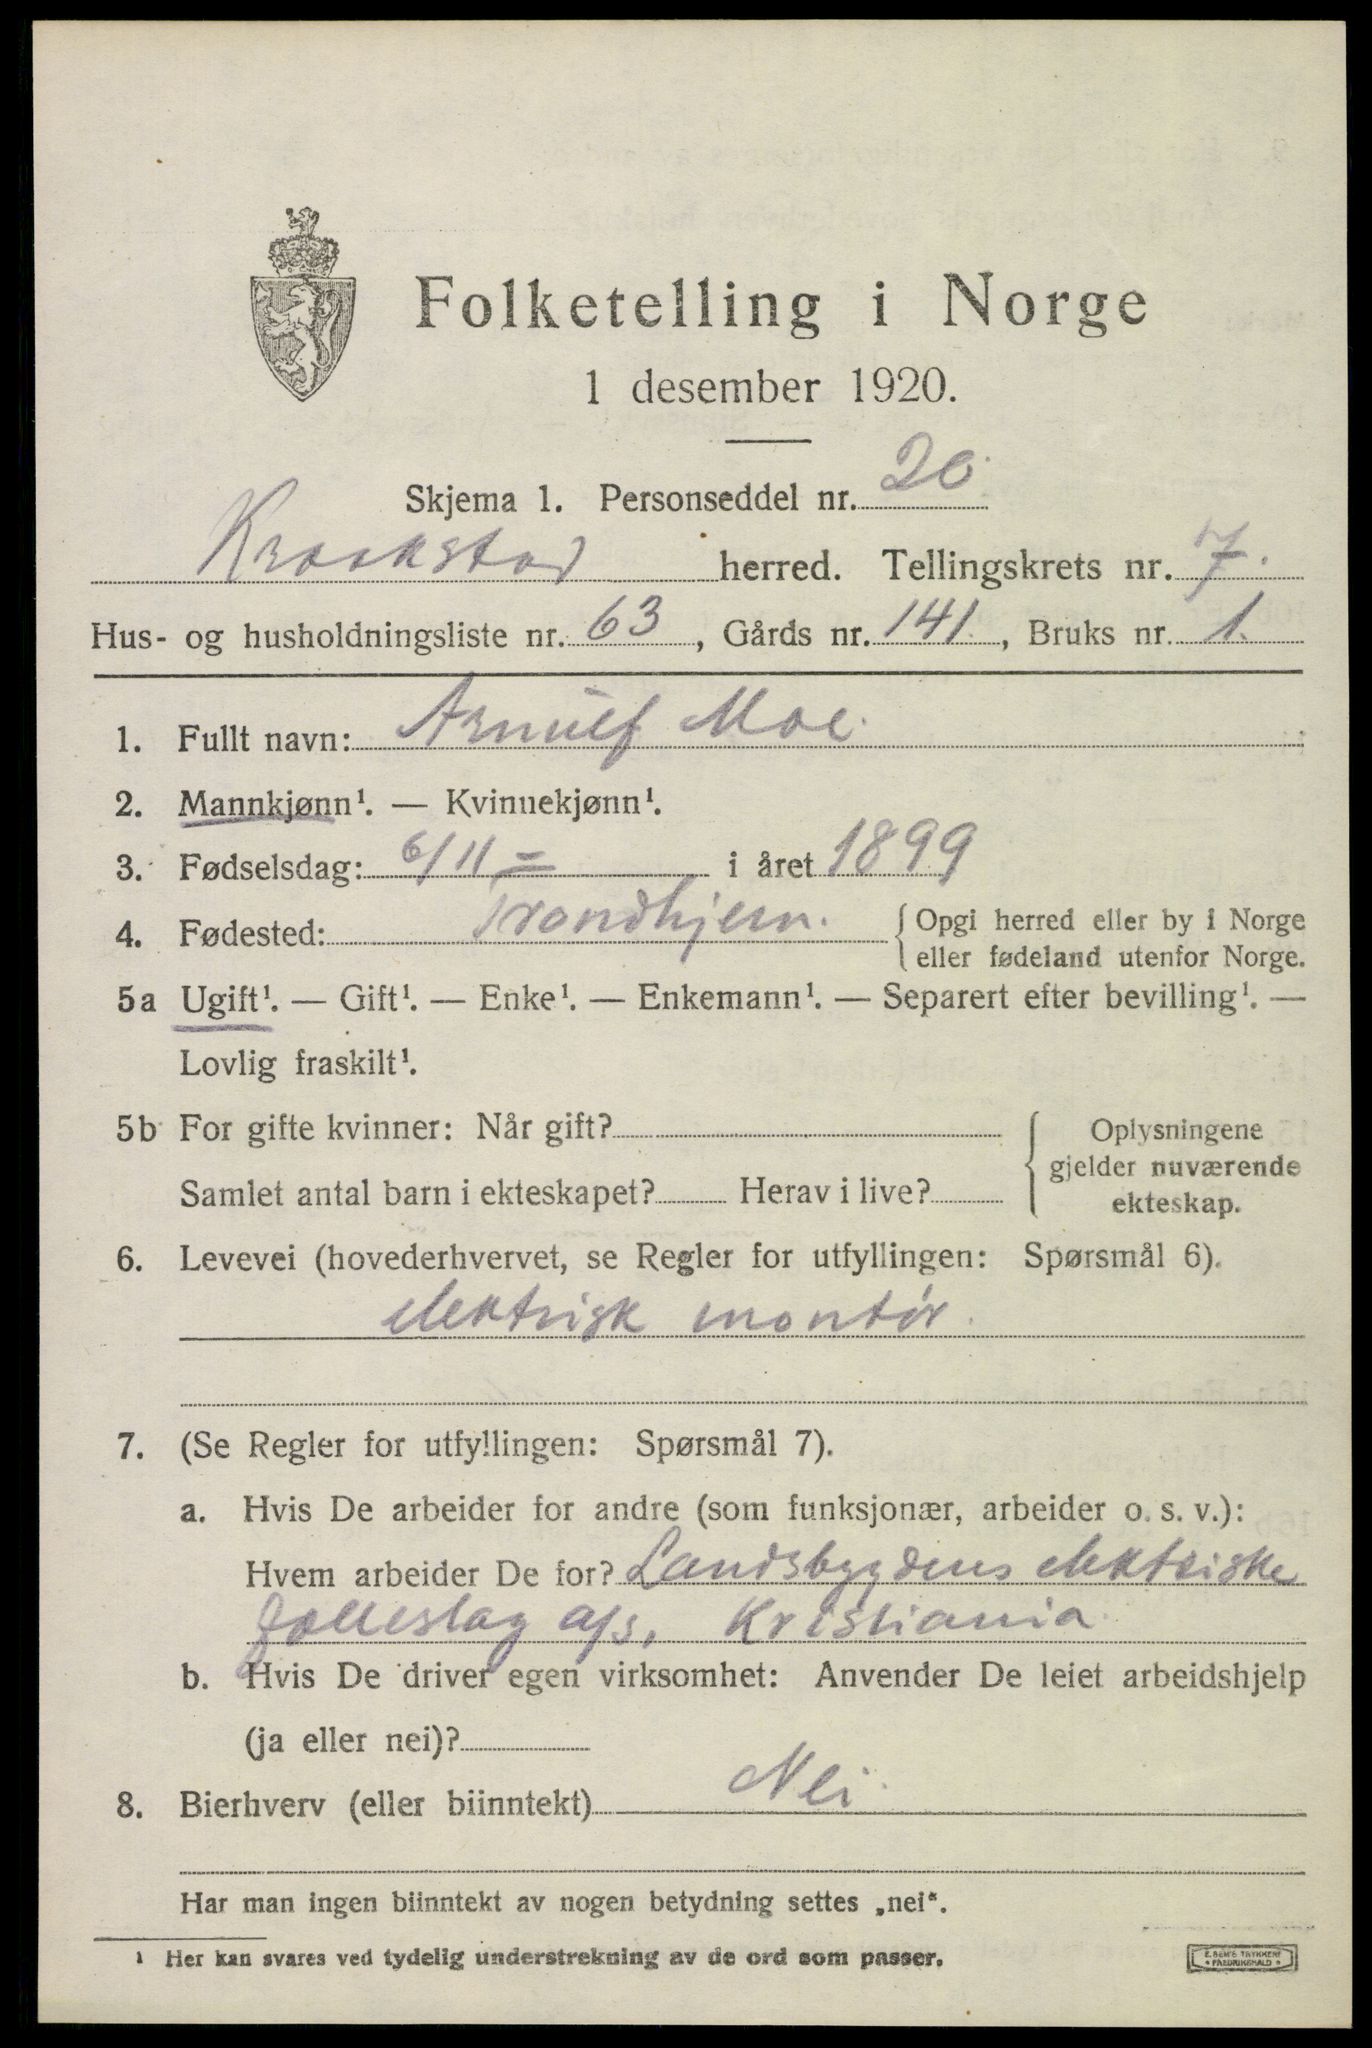 Folketelling i Norge
1 desember 1920.
Skjema 1. Personseddel nr. 20
Kraakstad herred. Tellingskrets nr. 7.
Hus- og husholdningsliste nr. 63, Gårds nr. 141., Bruks nr. 1.
1. Fullt navn: Arnulf Moe.
2. Mannkjønn¹. — Kvinnekjønn¹.
3. Fødselsdag: 6/11 = i året 1899
4. Fødested: Trondhjem. { Opgi herred eller by i Norge
eller fødeland utenfor Norge.
5a Ugift¹. — Gift¹. — Enke¹. — Enkemann¹. — Separert efter bevilling¹. —
Lovlig fraskilt¹.
5b For gifte kvinner: Når gift? { Oplysningene
gjelder nuværende
Samlet antal barn i ekteskapet? Herav i live?
ekteskap.
6. Levevei (hovederhvervet, se Regler for utfyllingen: Spørsmål 6).
elektrisk montör.
7. (Se Regler for utfyllingen: Spørsmål 7).
a. Hvis De arbeider for andre (som funksjonær, arbeider o. s. v.):
Hvem arbeider De for? Landsbygdens elektriske
felleslag a/s, Kristiania.
b. Hvis De driver egen virksomhet: Anvender De leiet arbeidshjelp
(ja eller nei)?
8. Bierhverv (eller biinntekt) Nei.
Har man ingen biinntekt av nogen betydning settes „nei“.
¹ Her kan svares ved tydelig understrekning av de ord som passer.
E. SEM'S TRYKKERI
FREDRIKSHALD